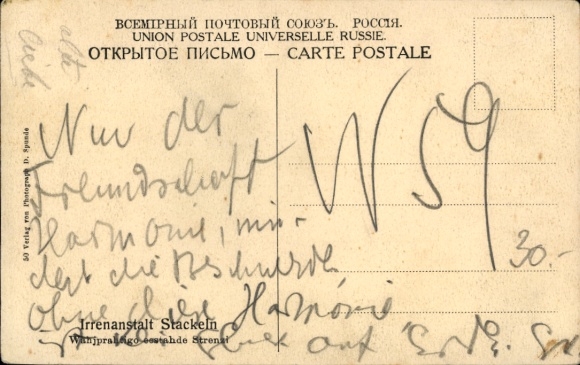 ВСЕМІРНЫЙ ПОЧТОВЫЙ СОЮЗЪ. РОССІЯ.
UNION POSTALE UNIVERSELLE RUSSIE.
ОТКРЫТОЕ ПИСЬМО — CARTE POSTALE
alte
Liebe
Nur der
Freundschaft
Harmonie, min-
dert die Beschwerde
ohne diese Harmonie
ist kein Glück auf Erde.
W 59
30.-
50 Verlag von Photograph D. Spunde
Irrenanstalt Stackeln